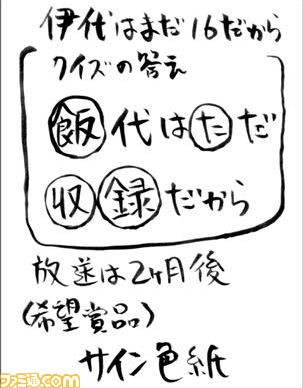 伊代はまだ16だから
クイズの答え
飯代はただ
収録だから
放送は2ヶ月後
(希望賞品)
サイン色紙
ファミ通.com